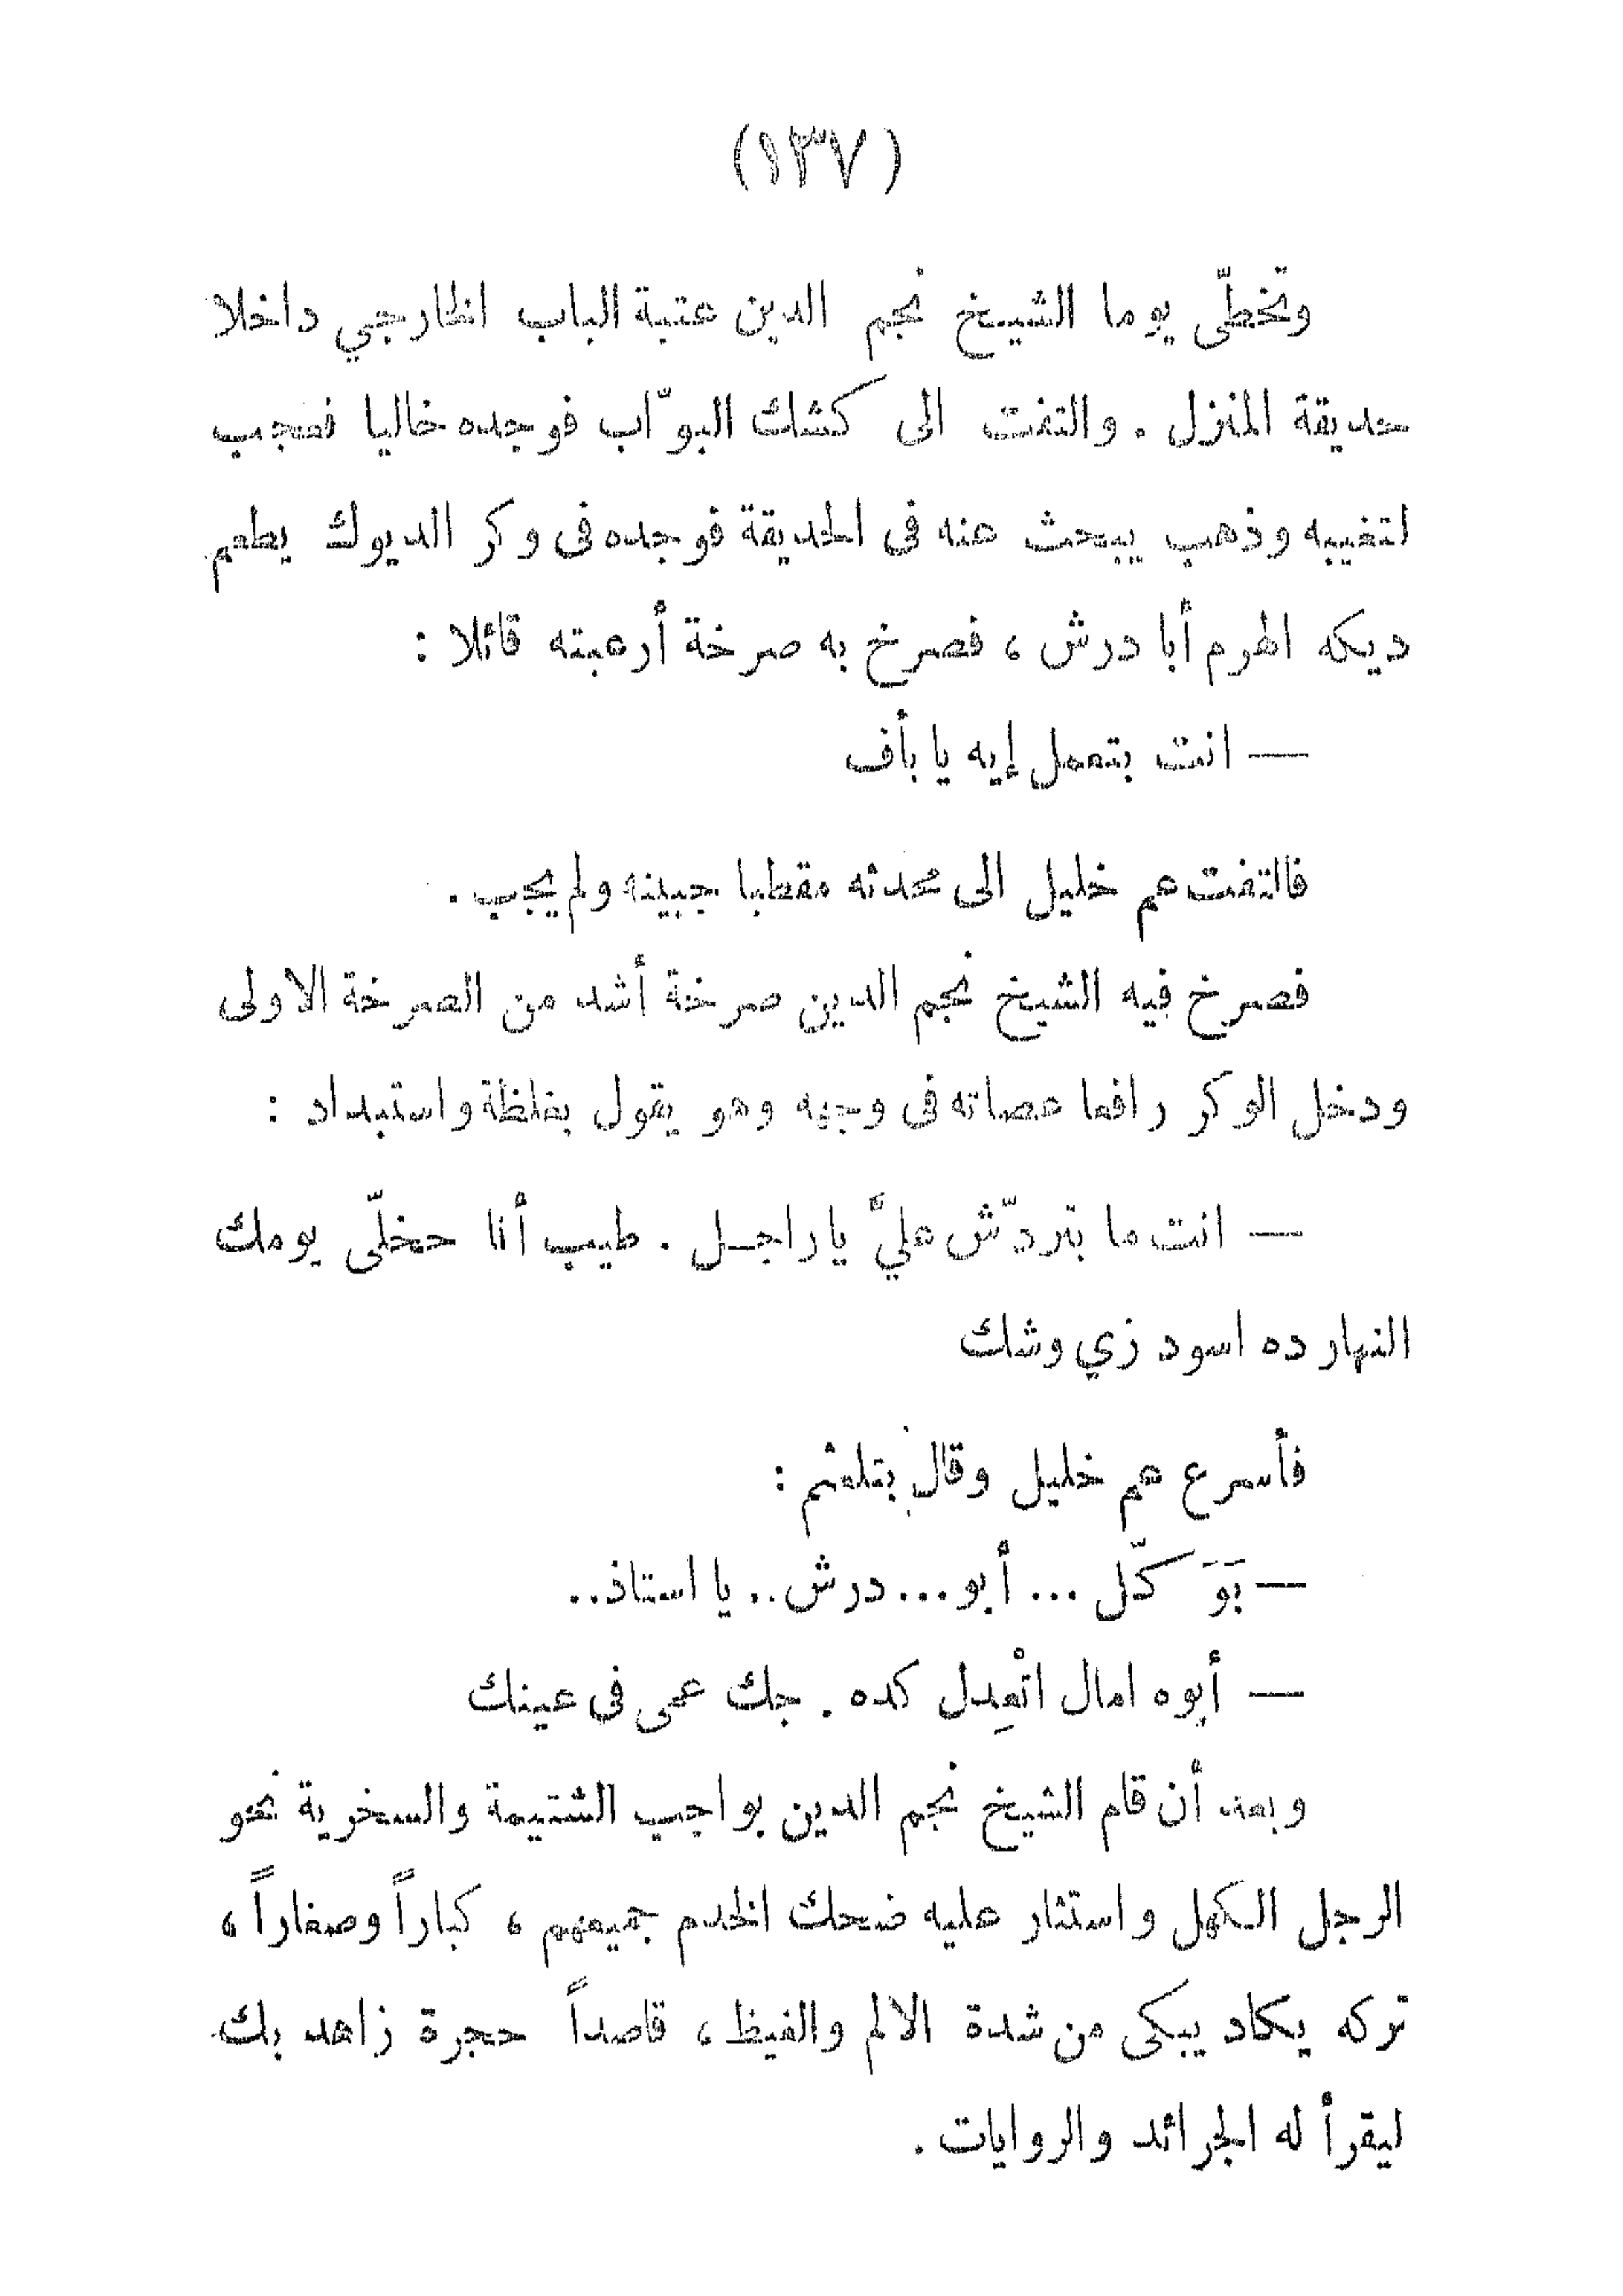 (١٣٧)
وتخطّى يوما الشيخ نجم الدين عتبة الباب الخارجي داخلا
حديقة المنزل . والتفت الى كشك البوّاب فوجده خاليا فعجب
لتغيبه وذهب يبحث عنه فى الحديقة فوجده فى وكر الديوك يطعم
ديكه الهرم أبا درش ، فصرخ به صرخة أرعبته قائلا :
— انت بتعمل إيه يا بأف
فالتفت عم خليل الى محدثه مقطبا جبينه ولم يجب .
فصرخ فيه الشيخ نجم الدين صرخة أشد من الصرخة الاولى
ودخل الوكر رافعا عصاته فى وجهه وهو يقول بغلظة واستبداد :
— انت ما بتردّش عليَّ ياراجل . طيب أنا حخلّى يومك
النهار ده اسود زي وشك
فأسرع عم خليل وقال بتلعثم :
— بَوَ كّل ... أبو... درش.. يا استاذ..
— أيوه امال اتْعِدل كده . جك عمى فى عينك
وبعد أن قام الشيخ نجم الدين بواجب الشتيمة والسخرية نحو
الرجل الكهل واستثار عليه ضحك الخدم جميعهم ، كباراً وصغاراً ،
تركه يكاد يبكى من شدة الالم والغيظ ، قاصداً حجرة زاهد بك
ليقرأ له الجرائد والروايات .